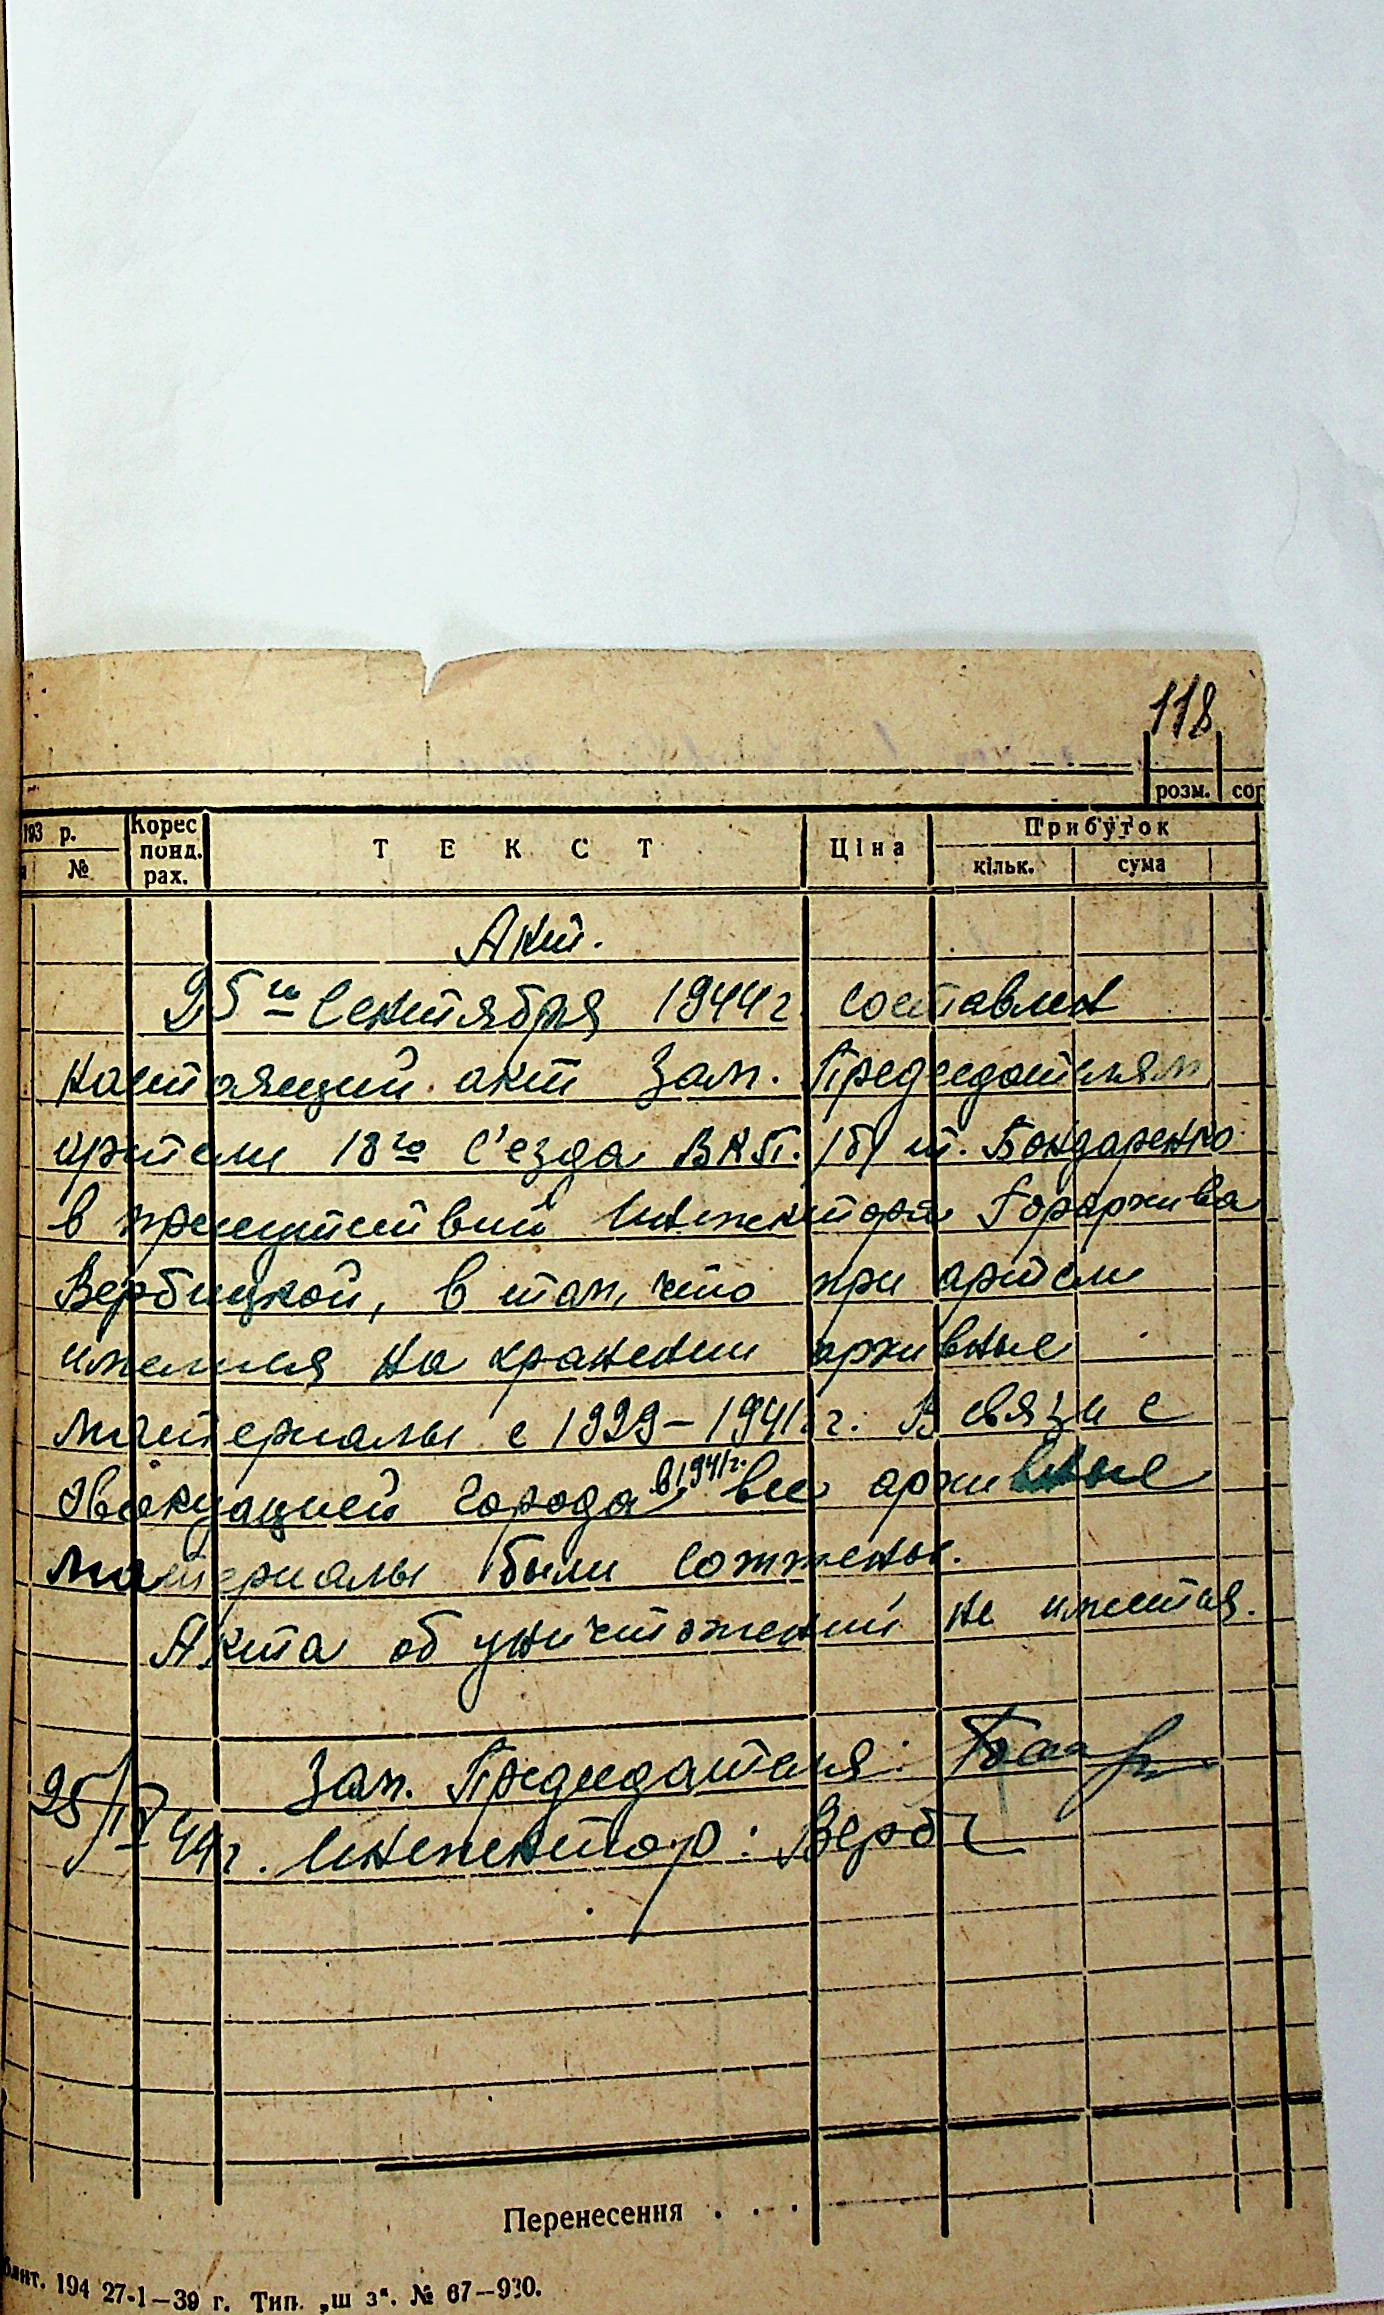 118
розм. сог
193 р. Корес понд. рах. Т Е К С Т Ціна Прибуток
№ кільк. сума
Акт.
25го Сентября 1944 г. составлен
настоящий акт Зам. Председателям
артели 18го С'езда ВКП. /б/ т. Бондаренко
в присутствии Инспектора Горархива
Вербицкой, в том, что при артели
имелися на хранении архивные
материалы с 1929–1941 г. В связи с
эвакуацией города в 1941 г. все архивные
материалы были сожжены.
Акта об уничтожении не имеется.
Зам. Председателя:
25/IX 44 г. Инспектор: Верб
Перенесення . . .
194 27-1–39 г. Тип. „ш з“. № 67–930.